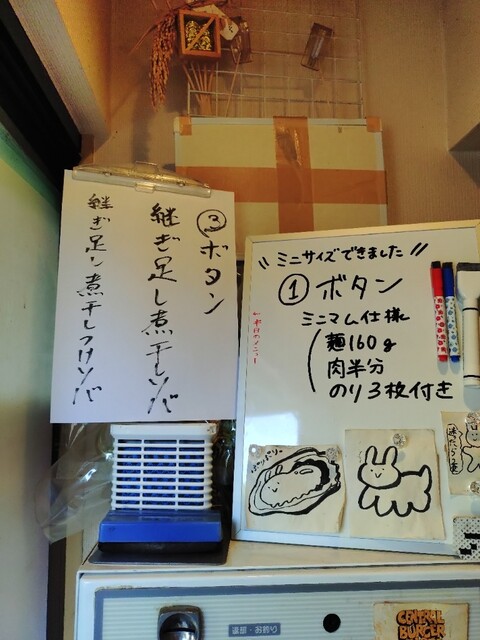 ③ボタン
継ぎ足し煮干しソバ
継ぎ足し煮干しつけソバ
\\ミニサイズできました//
①ボタン
ミニマム仕様
麺160g
肉半分
のり3枚付き
返却・お釣り
CENTRAL
BURGER